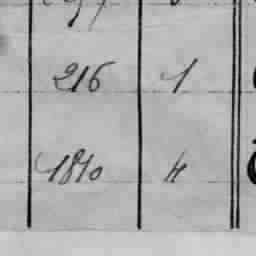 216 1
1810 4